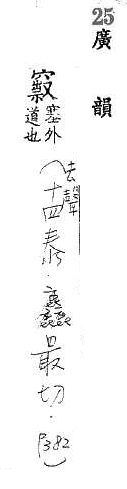 25
廣韻
竅塞外道也
(去聲十四泰.麤最切.P382)